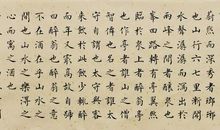 蔚然而深秀者瑯琊
也山行六七里漸聞
水聲潺潺而瀉出於
兩峰之間者釀泉也
峯回路轉有亭翼然
臨於泉上者醉翁亭
也作亭者誰山之僧
智僊也名之者誰太
守自謂也太守與客
來飲於此飲少輒醉
而年又最高故自號
曰醉翁也醉翁之意
不在酒在乎山水之
間也山水之樂得之
心而寓之酒也